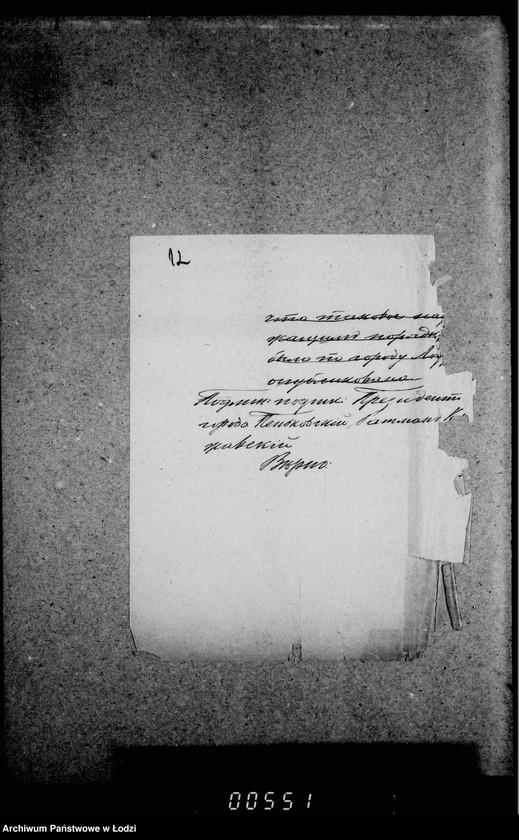 12
что таковое на
жащимъ порядк
было по городу Лод
опубликовано
Подлин: подпис: Президентъ
города Пеньковскій, Ратманъ К
жавскій
Вѣрно:
00551
Archiwum Państwowe w Łodzi